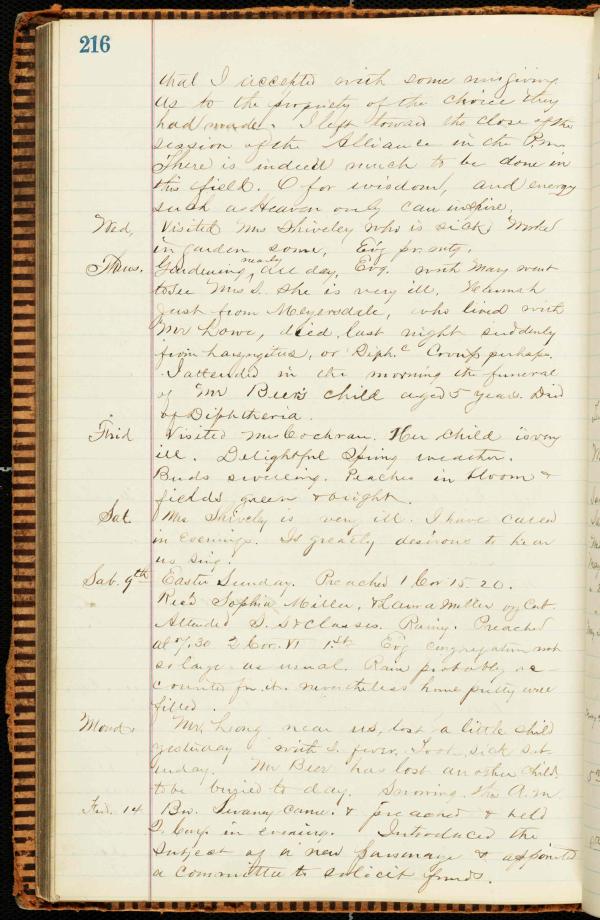 216
that I accepted with some misgiving
as to the propriety of the choice they
had made. I left toward the close of the
session of the Alliance in the P.m.
There is indeed much to be done in
this field. O for wisdom, and energy
such as Heaven only can inspire.
Wed, Visited Mrs Shiveley who is sick. Worked
in garden some, Ev'g pr. mtg.
Thus. Gardening, nearly all day, Evg. with Mary went
to see Mrs S. she is very ill.
just from Meyersdale, who lived with
Mr Lowe, died last night suddenly
from Laryngitus, or Diph.c Croup perhaps.
I attended in the morning the funeral
of Mr Beers child aged 5 years. Died
of Diphtheria.
Frid Visited Mrs Cochran. Her child is very
ill. Delightful Spring weather.
Buds swelling. Peaches in bloom &
fields green & bright.
Sat. Mrs Shively is very ill. I have called
in evenings. Is greatly desirous to hear
us sing.
Sab. 9th Easter Sunday. Preached 1 Cor 15-20.
Rec'd Sophia Miller, & Laura Miller by Cat.
Attended S. S & Classes. Rainy. Preached
at 7.30 2 Cor. VI 1st Ev'g congregation not
so large as usual. Rain probably ac-
counted for it. nevertheless home pretty well
filled.
Mond. Mr. Long near us, lost a little child
yesterday with S. fever. Took sick Sat-
urday. Mr Beer has lost another child,
to be buried to day. Snowing this A.m.
Frid. 14. Bro. Swaney came. & preached & held
Q. Conf. in evening. Introduced the
subject of a new parsonage & appointed
a committee to solicit funds.